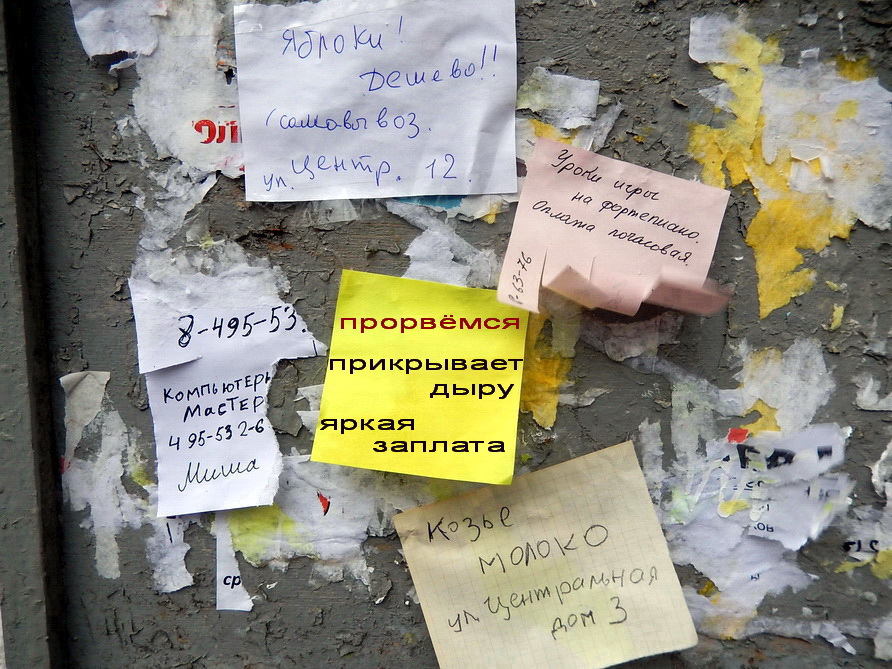 Яблоки!
Дешево!!
Самовывоз.
ул. Центр. 12.
Уроки игры
на фортепиано.
Оплата почасовая.
8-495-53.
Компьютер
Мастер
495-532-6
Миша
прорвёмся
прикрывает
дыру
яркая
заплата
Козье
молоко
ул Центральная
дом 3
ср